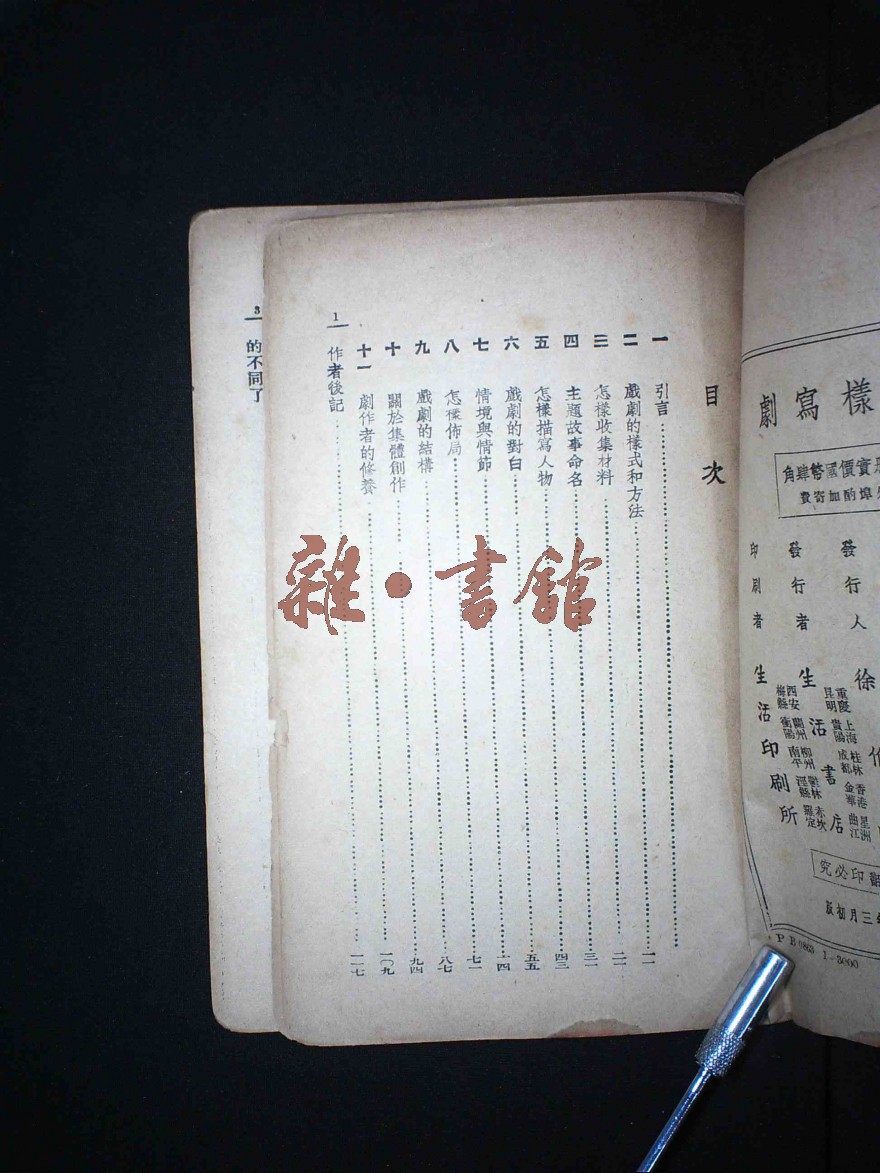 樣寫劇
實價國幣肆角
埠酌加寄費
發行人 徐
發行者 生活書店
重慶 上海 桂林 香港 星洲
昆明 貴陽 成都 金華 曲江
西安 蘭州 柳州 赤坎
梅縣 衡陽 南平 羅定
印刷者 生活印刷所
印必究
三月初版
P B 0863 1-3000
目次
一 引言
二 戲劇的樣式和方法 一一
三 怎樣收集材料 二一
四 主題故事命名 三一
五 怎樣描寫人物 四三
六 戲劇的對白 五五
七 情境與情節 六四
八 怎樣佈局 七一
九 戲劇的結構 八七
十 關於集體創作 九四
十一 劇作者的修養 一〇九
作者後記 一一七
1
3
的不同了
雜·書館